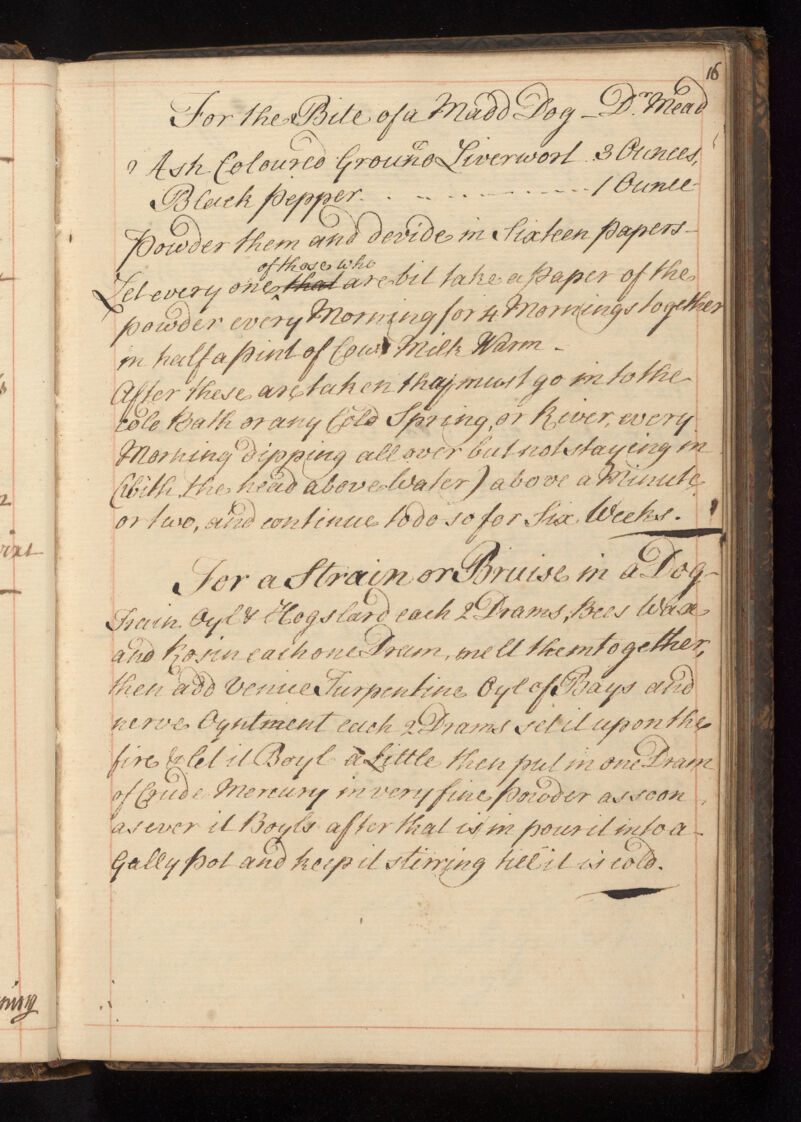 16
For the Bite of a Madd Dog - Dr. Mead
Ash Coloured Ground Liverwort 3 Ounces,
Black pepper. . . . . . . . . . 1 Ounce
powder them and devide in Sixteen papers -
of those who
Let every one that are bit take a paper of the
powder every Morning for 4 Mornings together
in half a pint of Cows Milk Warm -
After these are taken thay must go in to the
cold Bath or any Cold Spring, or River, every
Morning dipping all over but not staying in
(with the head above Water) above a Minute
or two, and continue to do so for Six Weeks.
For a Strain or Bruise in a Dog
Train Oyl & Hogs lard each 2 Drams, Bees Wax
and Rosin each one Dram, melt them together,
then add Venice Turpentine Oyl of Bays and
nerve Oyntment each 2 Drams set it upon the
fire & let it Boyl a Little then put in one Dram
of Crude Mercury in very fine powder as soon
as ever it Boyls after that is in pour it into a
Gally pot and keep it stirring till it is cold.